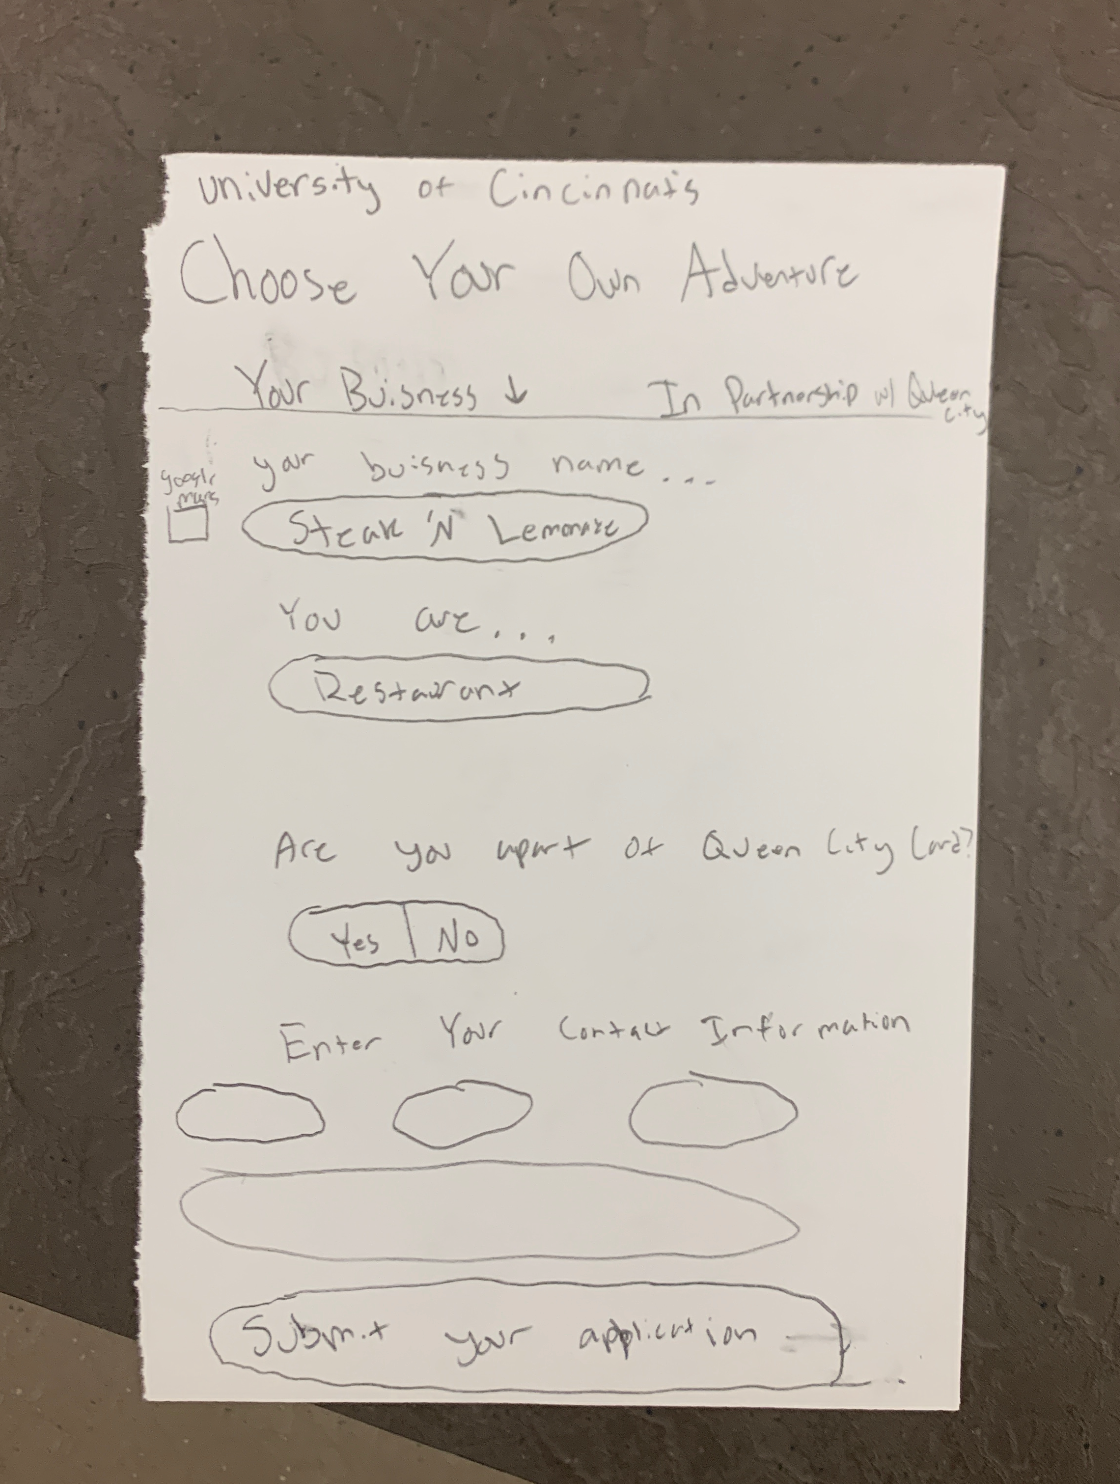 University of Cincinnati's
Choose Your Own Adventure
Your Buisness ↓ In Partnorship w/ Queen City
google maps
your buisness name...
Steak 'N' Lemonade
You are...
Restaurant
Are you apart of Queen City Card?
Yes No
Enter Your Contact Information
Submit your application